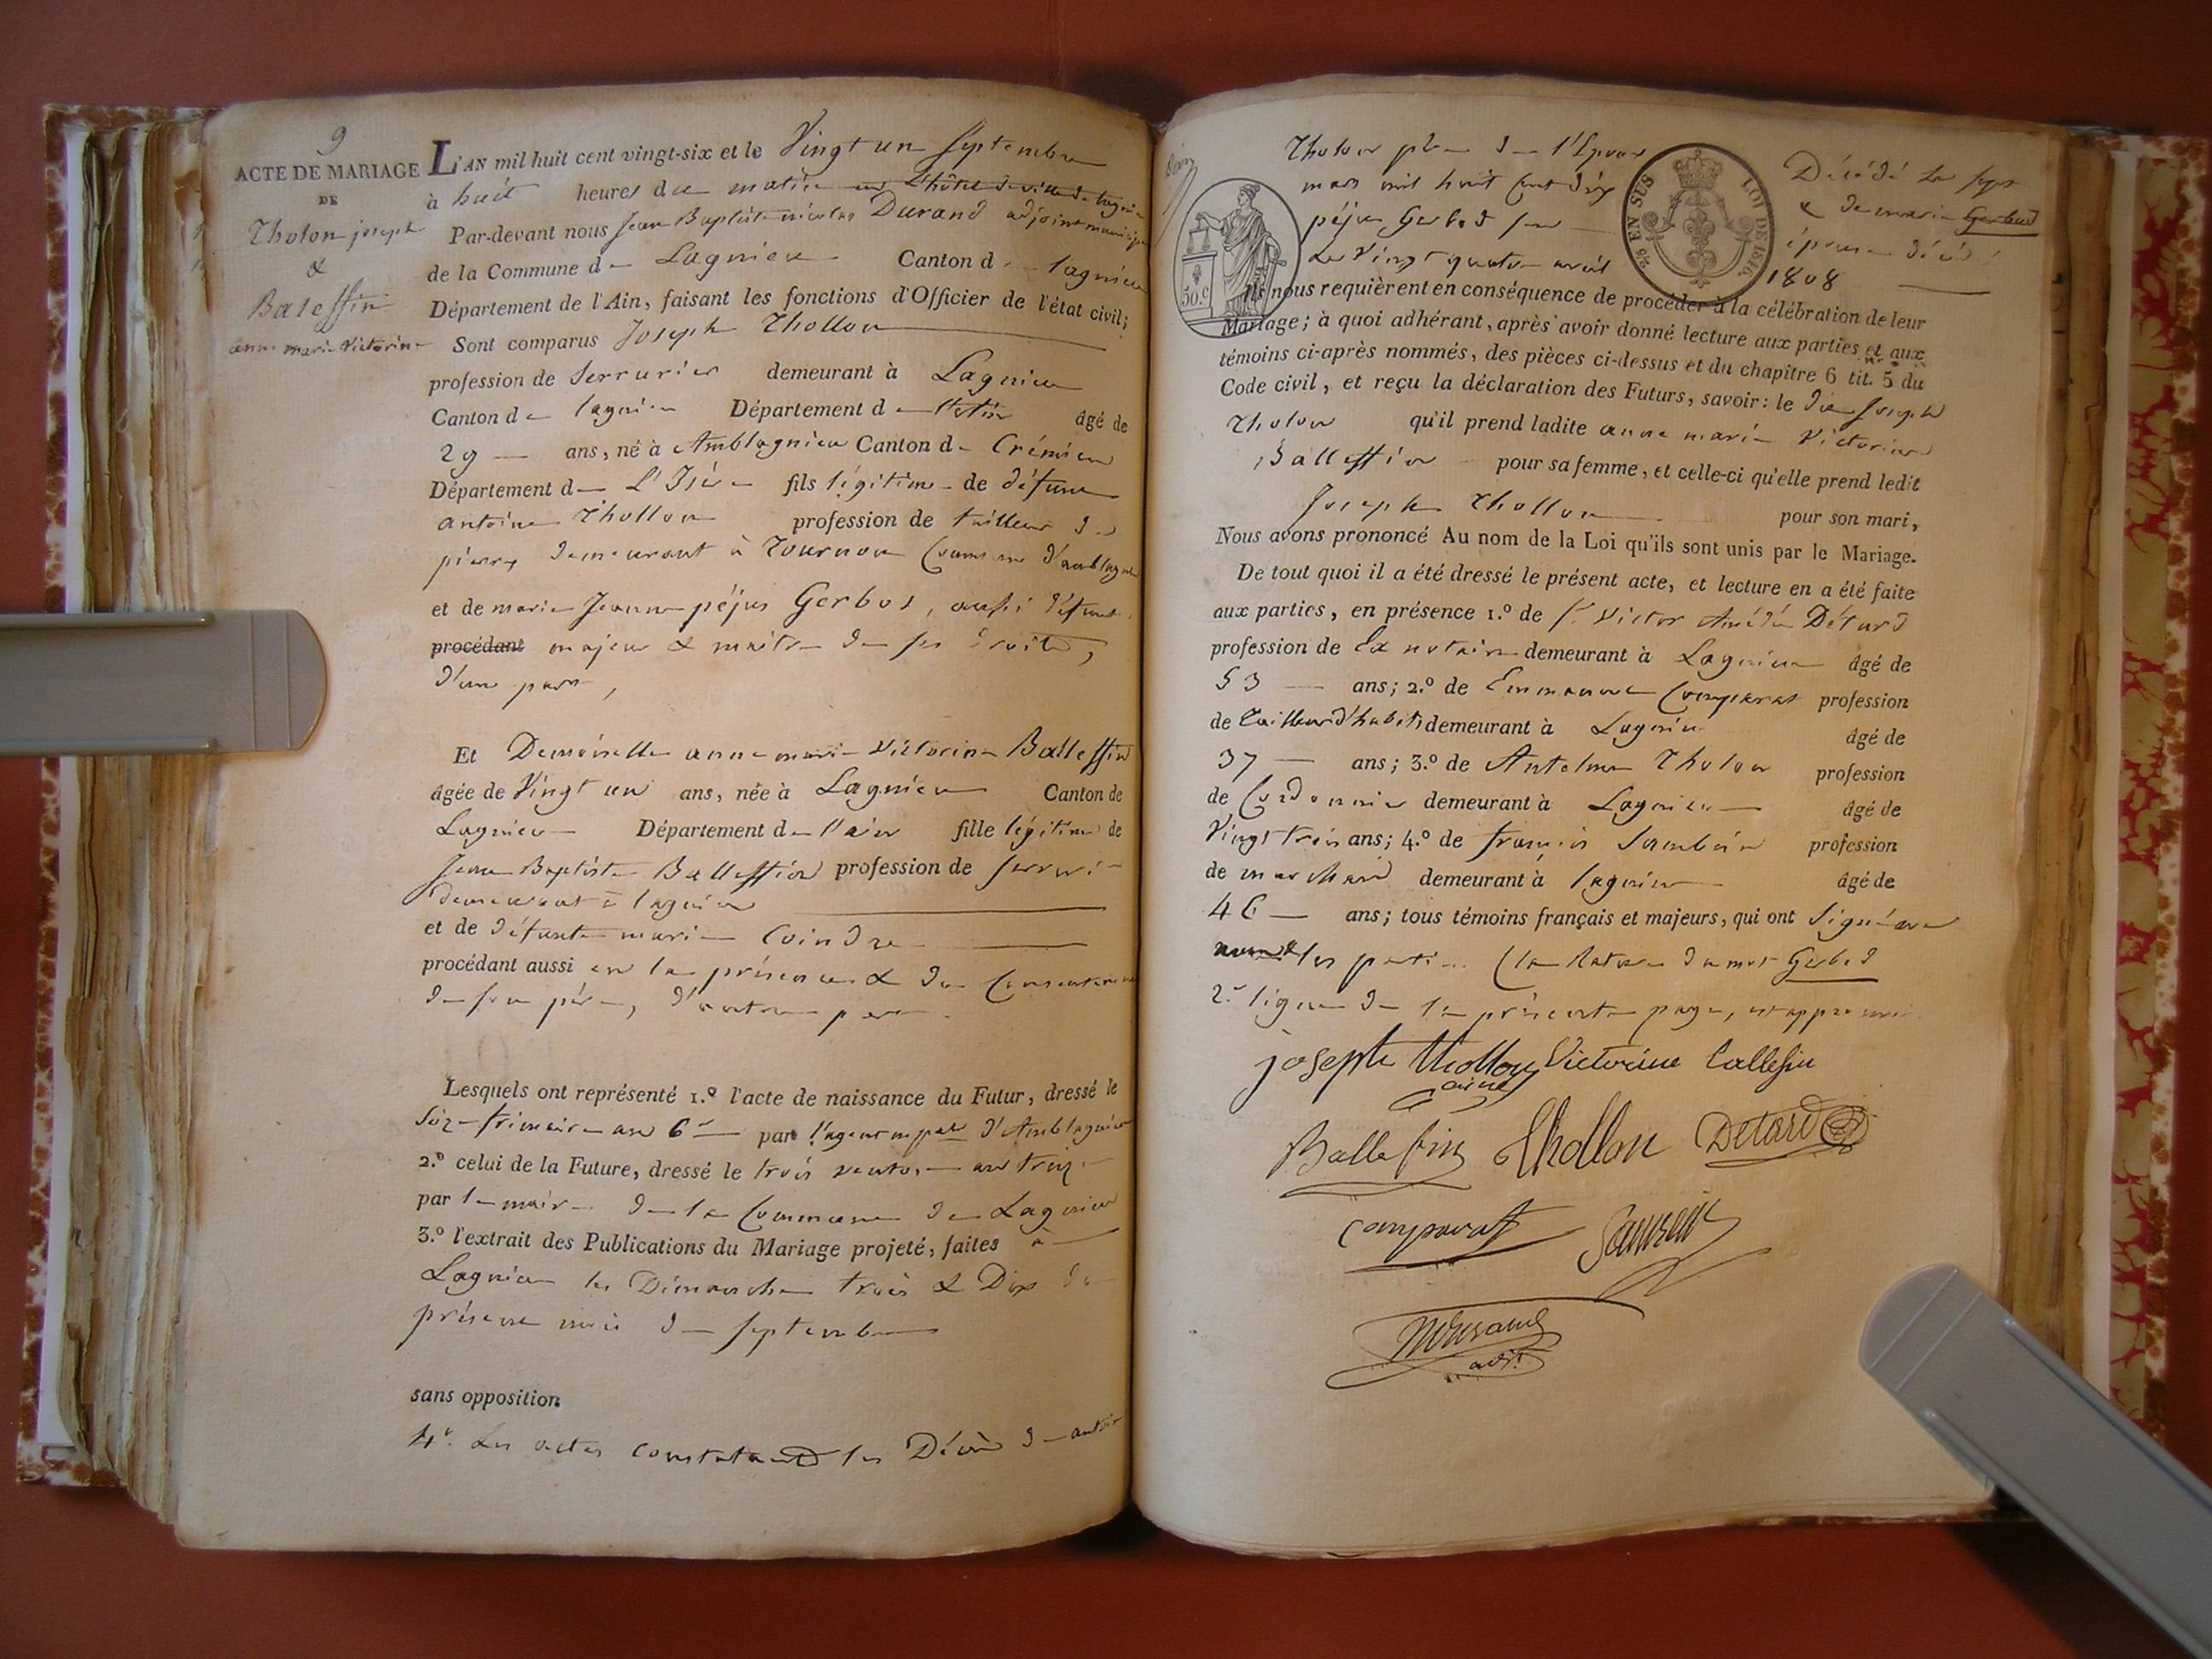 9
ACTE DE MARIAGE
DE
Tholon joseph
&
Balessin
anne marie Victorine
L'AN mil huit cent vingt-six et le Vingt un Septembre
à huit heures du matin en l'hôtel de ville de lagnieu
Par-devant nous Jean Baptiste nicolas Durand adjoint municipal
de la Commune de Lagnieu Canton de lagnieu
Département de l'Ain, faisant les fonctions d'Officier de l'état civil;
Sont comparus Joseph Thollon
profession de Serrurier demeurant à Lagnieu
Canton de lagnieu Département de l'Ain âgé de
29 ans, né à Amblagnieu Canton de Crémieu
Département de L'Isère fils légitime de défunt
antoine Thollon profession de tailleur de
pierre demeurant à Tournon Commune d'amblagnieu
et de marie Jeanne péju Gerbod, aussi défunte
procédant majeur & maître de ses droits,
d'une part,
Et Demoiselle anne marie Victorine Ballessin
âgée de Vingt un ans, née à Lagnieu Canton de
Lagnieu Département de l'ain fille légitime de
Jean Baptiste Ballessin profession de serrurier
demeurant à lagnieu
et de défunte marie Coindre
procédant aussi en la présence & du Consentement
de son père, d'autre part.
Lesquels ont représenté 1.º l'acte de naissance du Futur, dressé le
Six frimaire an 6e par l'agent mpal d'Amblagnieu
2.º celui de la Future, dressé le trois ventose an treize
par le maire de la Commune de Lagnieu
3.º l'extrait des Publications du Mariage projeté, faites à
Lagnieu les Dimanches trois & Dix du
présent mois de septembre
sans opposition
4º. Les actes constatant les Décès d'antoine
Tholon père de l'Epoux Décédé le sept
mars mil huit Cent dix & de marie Gerbod
péju Gerbod son épouse décédée
le Vingt quatre avril 1808
50.c
EN SUS
LOI DE 1816.
Ils nous requièrent en conséquence de procéder à la célébration de leur
Mariage; à quoi adhérant, après avoir donné lecture aux parties et aux
témoins ci-après nommés, des pièces ci-dessus et du chapitre 6 tit. 5 du
Code civil, et reçu la déclaration des Futurs, savoir: le dit Joseph
Tholon qu'il prend ladite anne marie Victorine
Ballessin pour sa femme, et celle-ci qu'elle prend ledit
Joseph Thollon pour son mari,
Nous avons prononcé Au nom de la Loi qu'ils sont unis par le Mariage.
De tout quoi il a été dressé le présent acte, et lecture en a été faite
aux parties, en présence 1.º de Sr Victor Amédé Détard
profession de Ex notaire demeurant à Lagnieu âgé de
53 ans; 2.º de Emmanuel Comparat profession
de Tailleur d'habits demeurant à Lagnieu âgé de
37 ans; 3.º de Antelme Tholon profession
de Cordonnier demeurant à Lagnieu âgé de
Vingt trois ans; 4.º de françois profession
de marchand demeurant à lagnieu âgé de
46 ans; tous témoins français et majeurs, qui ont Signé avec
nous & les parties (la Rature du mot Gerbod
2e ligne de la présente page, est approuvée
joseph thollon Victorine Ballesin
ainé
Ballesin Thollon Detard
Comparat
NDurand
adjt